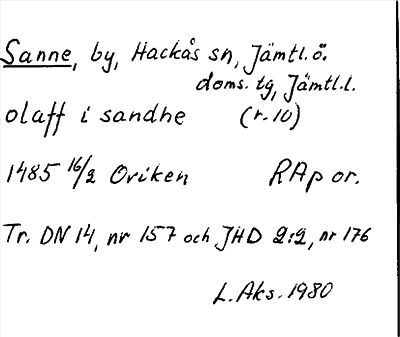 Sanne, by, Hackås sn, Jämtl.ö.
doms. tg, Jämtl.l.
olaff i sandhe (r. 10)
1485 16/2 Oviken RAp or.
Tr. DN 14, nr 157 och JHD 2:2, nr 176
L. Aks. 1980